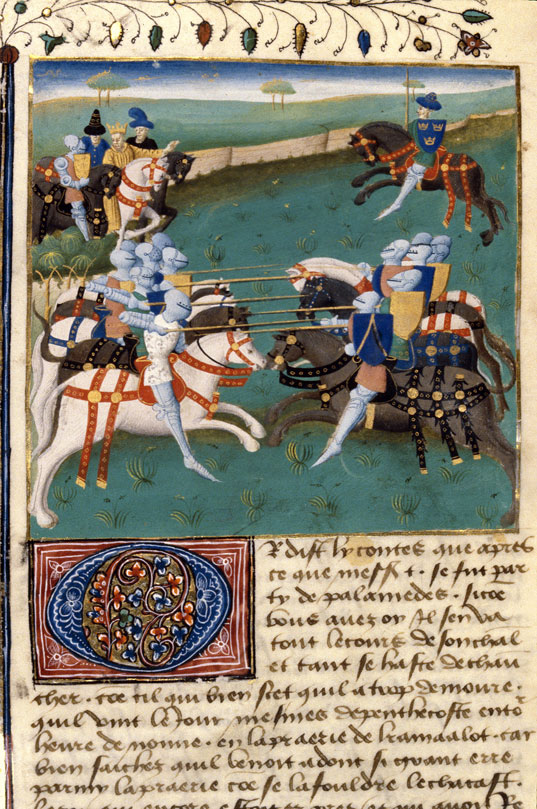 R dist ly contes que apres
ce que mess t. se fut par
ty de palamedes. sicoe
vous avez oy Il sen va
tout le cours de son chal
et tant se haste de chau
cher. coe cil qui bien scet quil a trop demoure.
quil vint le jour mesmes de penthecoste ento
heure de nonne. en la praerie de kramaalot. car
bien sachez quil venoit adont si grant erre
parmy la praerie coe se la fouldre le chacast.